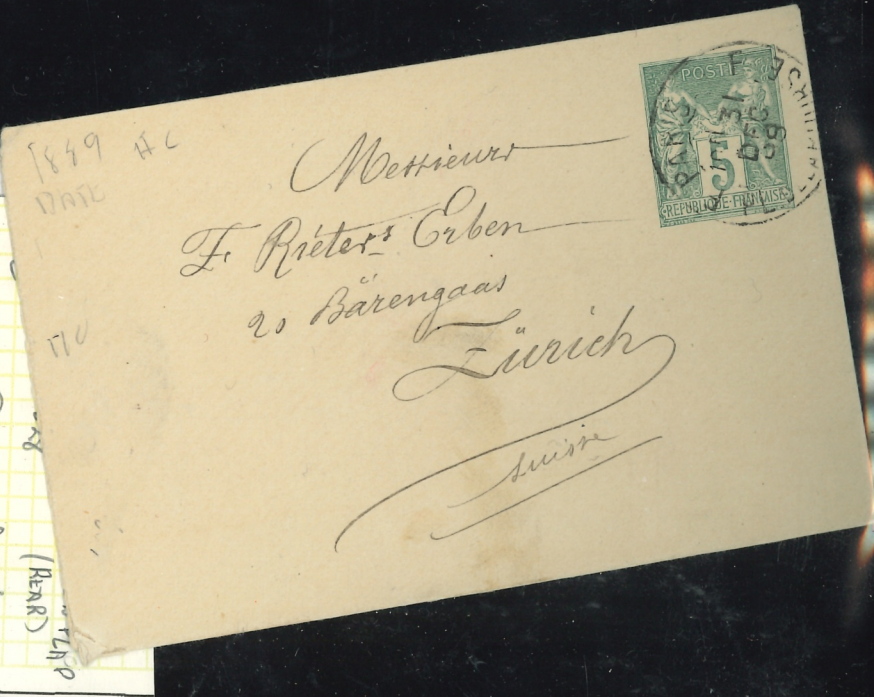 1889 H C
DATE
MU
Messieurs
F. Riéter's Erben
20 Bärengaas
Zürich
Suisse
POSTE
5
REPUBLIQUE FRANÇAISE
PARIS
31
DEC
89
(REAR)